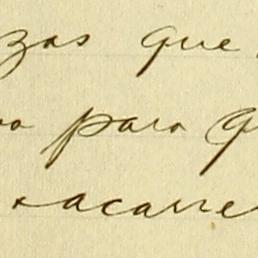 zas que
para q
acarre